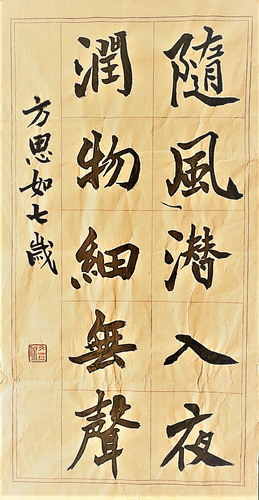 隨風潜入夜
潤物細無聲
方思如七歲